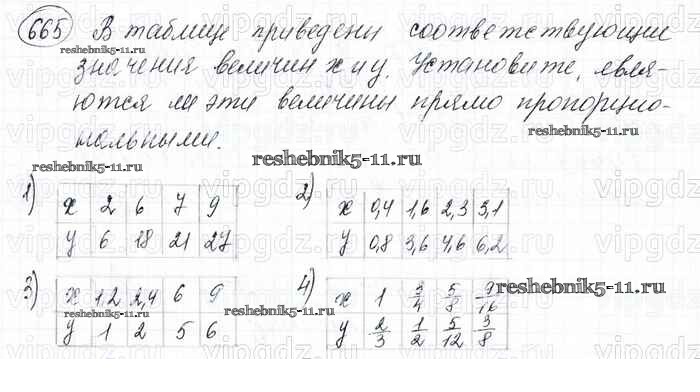 665 В таблице приведены соответствующии
reshebnik5-11.ru
значения величин х и у. Установите, явля-
ются ли эти величины прямо пропорцио-
нальными.
reshebnik5-11.ru
reshebnik5-11.ru
1) х 2 6 7 9
у 6 18 21 27
2) х 0,4 1,6 2,3 3,1
у 0,8 3,6 4,6 6,2
3) х 1,2 2,4 6 9
у 1 2 5 6
reshebnik5-11.ru
4) х 1 3/4 5/8 9/16
у 2/3 1/2 5/12 3/8
reshebnik5-11.ru